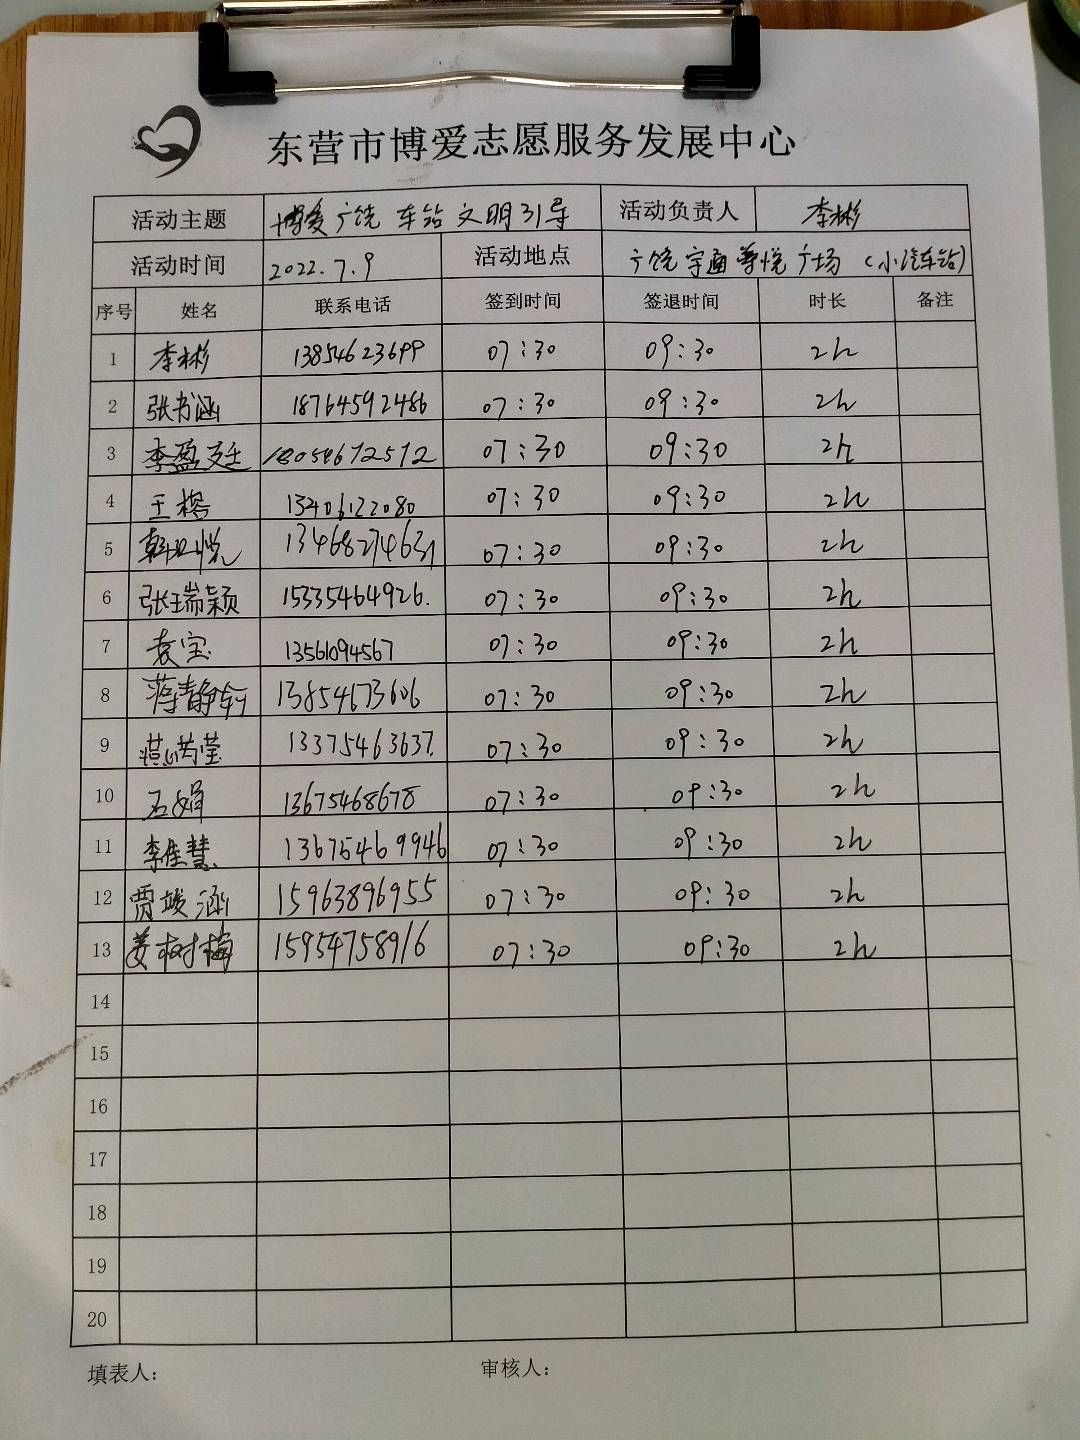 东营市博爱志愿服务发展中心
活动主题 博爱广饶车站文明引导 活动负责人 李彬
活动时间 2022.7.9 活动地点 广饶宇通尊悦广场（小汽车站）
序号 姓名 联系电话 签到时间 签退时间 时长 备注
1 李彬 13854623699 07:30 09:30 2h
2 张书涵 18764592486 07:30 09:30 2h
3 李盈 07:30 09:30 2h
4 王榕 13406122080 07:30 09:30 2h
5 13468274631 07:30 09:30 2h
6 张瑞颖 15335464926. 07:30 09:30 2h
7 袁宝 13561094567 07:30 09:30 2h
8 蒋静轩 13854673606 07:30 09:30 2h
9 13375463637. 07:30 09:30 2h
10 石娟 13675468678 07:30 09:30 2h
11 李佳慧 13675469946 07:30 09:30 2h
12 贾竣涵 15963896955 07:30 09:30 2h
13 姜树梅 15954758916 07:30 09:30 2h
14
15
16
17
18
19
20
填表人： 审核人：